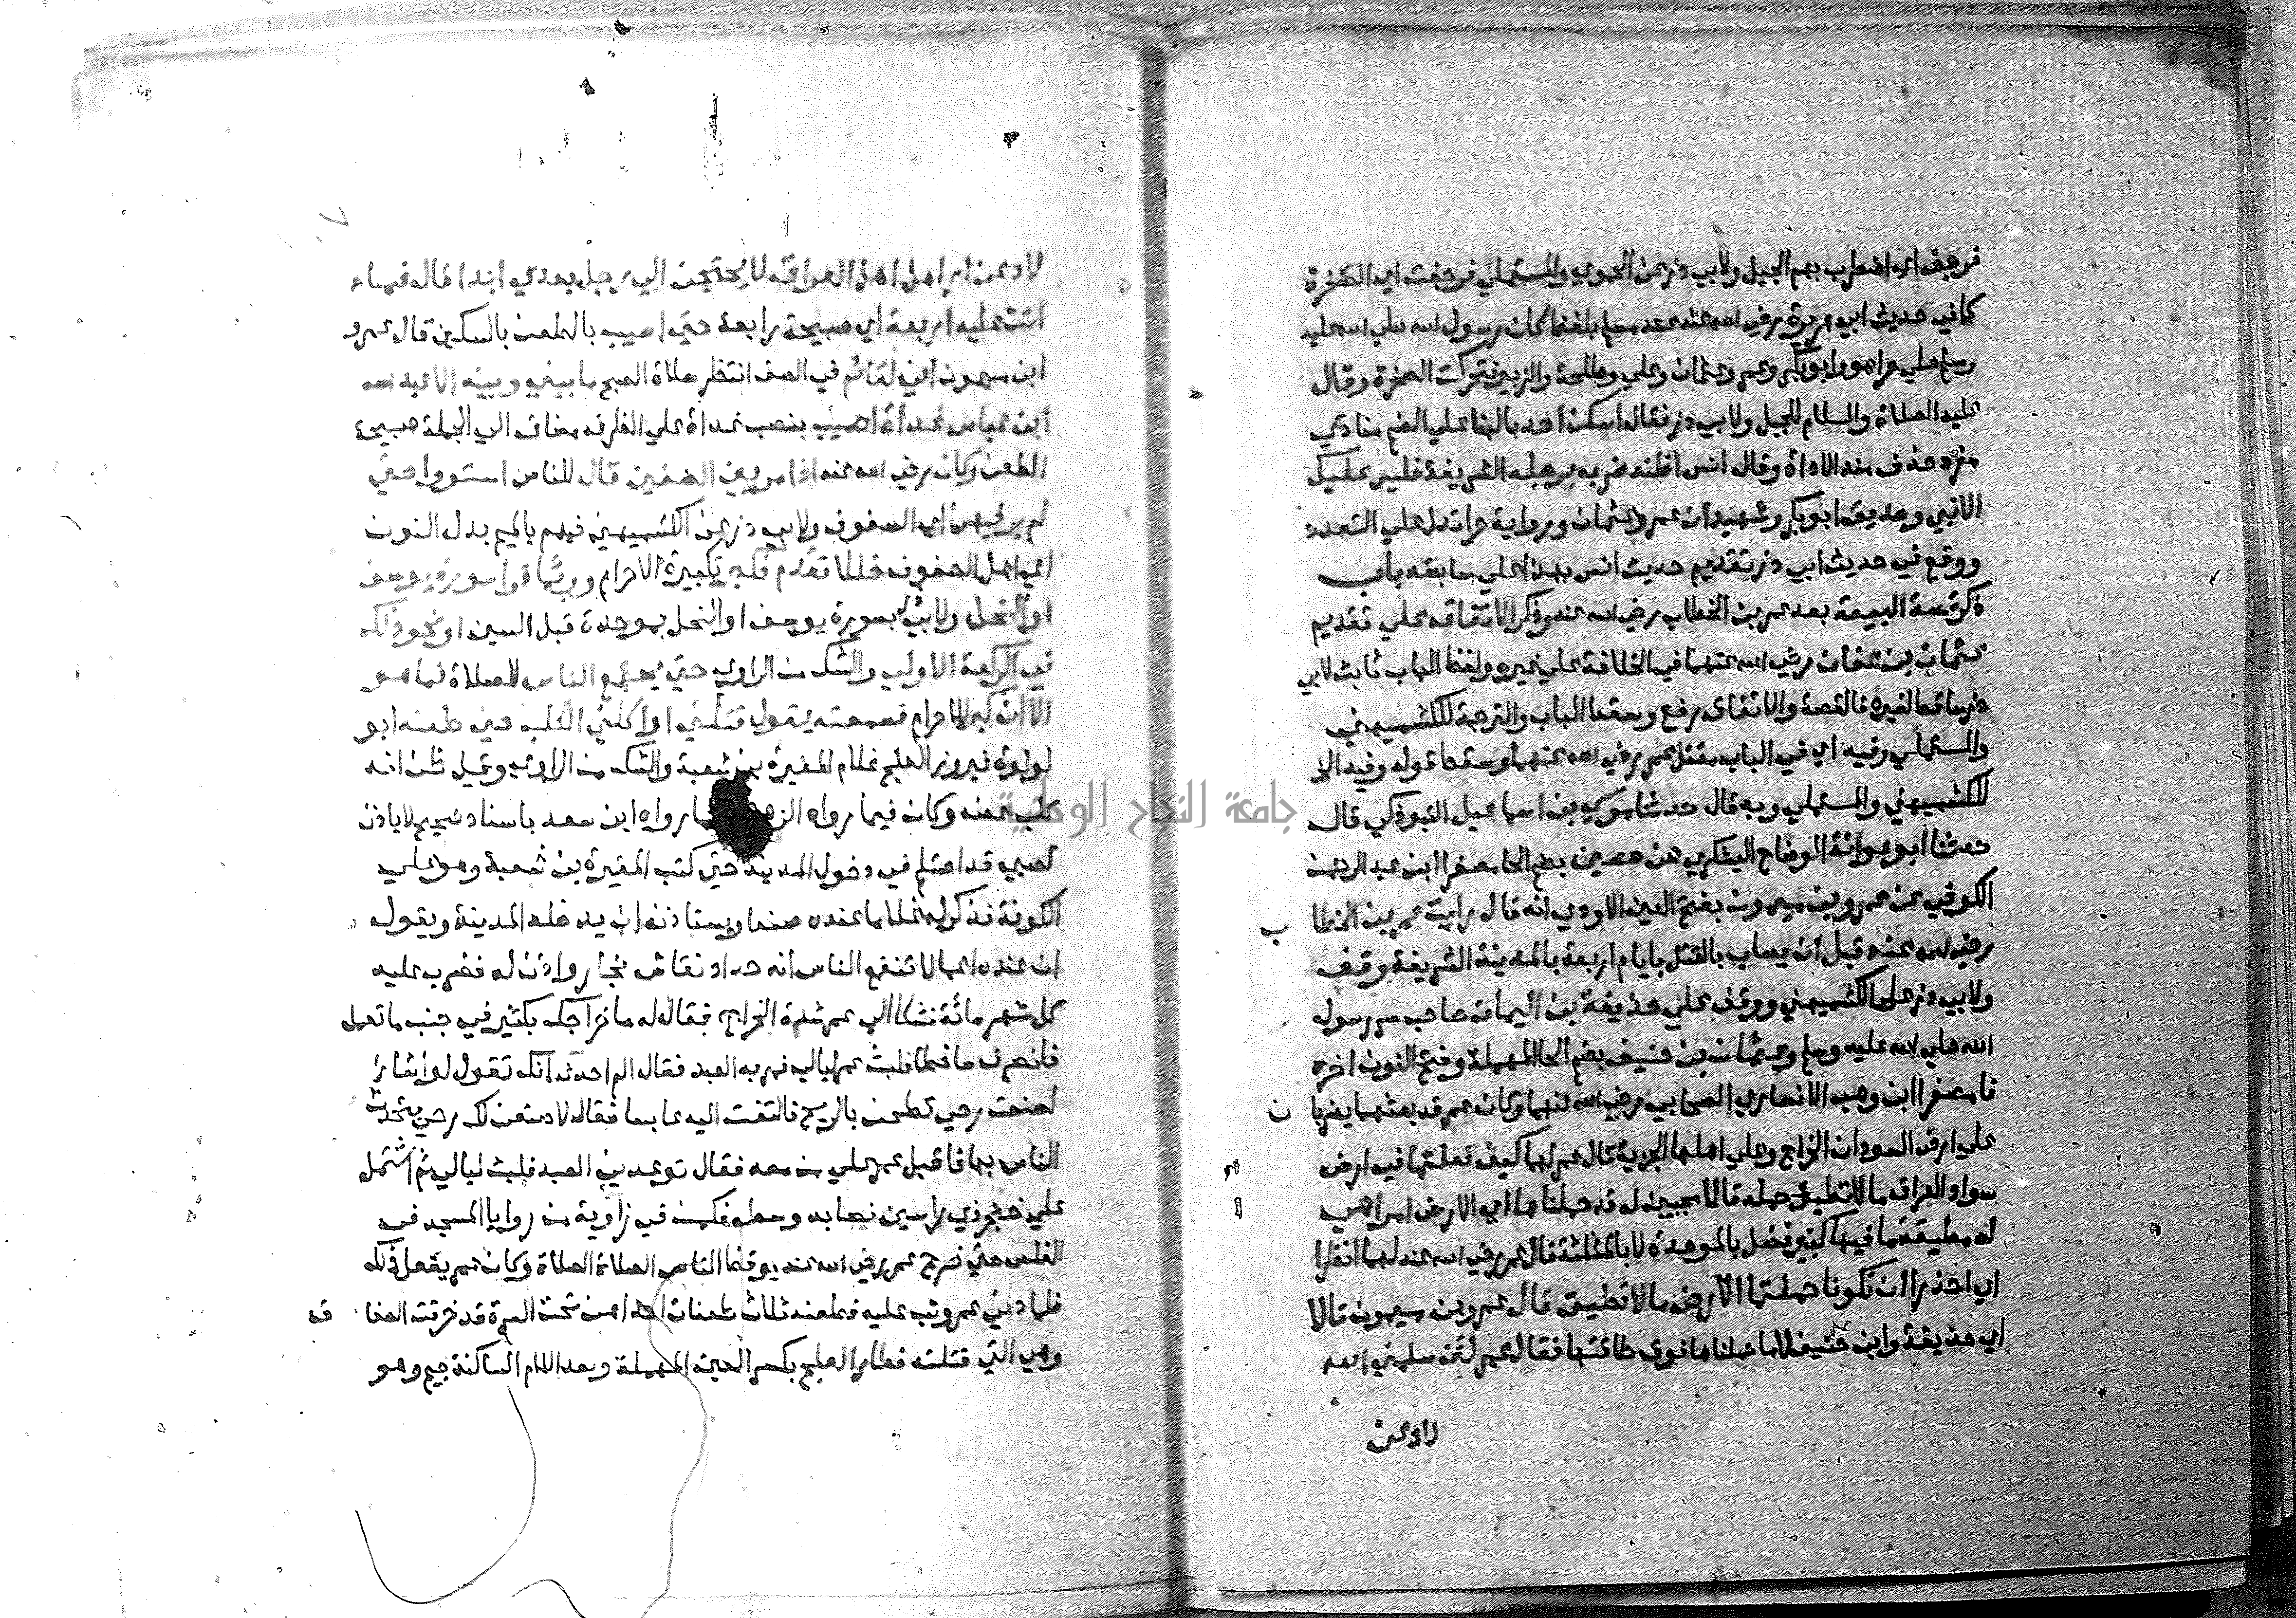 فرجف اي اضطرب بهم الجبل ولابي ذر عن الحموي والمستملي فرجفت اي الصخرة
كما في حديث ابي هريرة رضي الله عنه عند مسلم بلفظ كان رسول الله صلي الله عليه
وسلم علي حراء هو وابو بكر وعمر وعثمان وعلي وطلحة والزبير فتحركت الصخرة وقال
عليه الصلاة والسلام للجبل ولابي ذر فقال اسكن احد بالبنا علي الضم منادي
مفرد حذف منه الاداة وقال انس اظنه ضربه برجله الشريفة فليس عليك
الا نبي وصديق ابو بكر وشهيدان عمر وعثمان ورواية حرا تدل علي التعدد
ووقع في حديث ابي ذر تقديم حديث انس هذا علي سابقه باب
ذكر قصة البيعة بعد عمر بن الخطاب رضي الله عنه وذكر الاتفاق علي تقديم
عثمان بن عفان رضي الله عنهما في الخلافة علي غيره ولفظ الباب ثابت لابي
ذر ساقط لغيره فالقصة والاتفاق رفع وسقط الباب والترجمة للكشميهني
والمستملي وفيه اي في الباب مقتل عمر رضي الله عنهما وسقط قوله وفيه الا
للكشميهني والمستملي وبه قال حدثنا موسي بن اسماعيل التبوذكي قال
حدثنا ابو عوانة الوضاح اليشكري عن حصين بضم الحا مصغرا ابن عبد الرحمن
الكوفي عن عمرو بن ميمون بفتح العين الاودي انه قال رايت عمر بن الخطا
ب
رضي الله عنه قبل ان يصاب بالقتل بايام اربعة بالمدينة الشريفة وقف
ولابي ذر عن الكشميهني ووقف علي حذيفة بن اليمان صاحب سر رسول
الله صلي الله عليه وسلم وعثمان بن حنيف بضم الحا المهملة وفتح النون اخره
فا مصغرا ابن وهب الانصاري الصحابي رضي الله عنهما وكان عمر قد بعثهما يضربا
ن
علي ارض السواد الخراج وعلي اهلها الجزية قال عمر لهما كيف فعلتما في ارض
سواد العراق ما لا تطيق حمله قالا مجيبين له قد حملناها اي الارض امرا هي
له مطيقة ما فيها كبير فضل بالموحدة لا بالمثلثة قال عمر رضي الله عنه لهما انظرا
اي احذرا ان تكونا حملتما الارض ما لا تطيق قال عمرو بن ميمون قالا
اي حذيفة وابن حنيف لا ما حملناها فوق طاقتها فقال عمر لئن سلمني الله
لادعن
لادعن ارامل اهل العراق لا يحتجن الي رجل بعدي ابدا قال فما
اتت عليه اربعة اي صبيحة رابعة حتي اصيب بالطعن بالسكين قال عمرو
ابن ميمون اني لقائم في الصف انتظر صلاة الصبح ما بيني وبينه الا عبد الله
ابن عباس غداة اصيب بنصب غداة علي الظرف مضاف الي الجملة صبيحة
الطعن وكان رضي الله عنه اذا مر بين الصفين قال للناس استووا حتي
لم ير فيهن اي الصفوف ولابي ذر عن الكشميهني فيهم بالميم بدل النون
اي اهل الصفوف خللا تقدم فكبر تكبيرة الاحرام وربما قرا سورة يوسف
او النحل ولابي ذر بسورة يوسف او النحل بموحدة قبل السين او نحو ذلك
في الركعة الاولي والشك من الراوي حتي يجتمع الناس للصلاة فما هو
الا ان كبر للاحرام فسمعته يقول قتلني او اكلني الكلب حين طعنه ابو
لولوة فيروز العلج غلام المغيرة بن شعبة والشك من الراوي وقيل ظن انه
كلب عضه وكان فيما رواه الزهري مما رواه ابن سعد باسناد صحيح لا ياذن
لصبي قد احتلم في دخول المدينة حتي كتب المغيرة بن شعبة وهو علي
الكوفة فذكر له غلاما عنده صنعا ويستاذنه ان يدخله المدينة ويقول
ان عنده اعمالا تنفع الناس انه حداد نقاش نجار واذن له فضرب عليه
كل شهر مائة فشكا الي عمر شدة الخراج فقال له ما خراجك بكثير في جنب ما تعمل
فانصرف ساخطا فلبث عمر ليالي فمر به العبد فقال الم احدث انك تقول لو اشا
لصنعت رحي تطحن بالريح فالتفت اليه عابسا فقال لاصنعن لك رحي يتحدث
الناس بها فاقبل عمر علي من معه فقال توعدني العبد فلبث ليالي ثم اشتمل
علي خنجر ذي راسين نصابه وسطه فكمن في زاوية من زوايا المسجد في
الغلس حتي خرج عمر رضي الله عنه يوقظ الناس الصلاة الصلاة وكان عمر يفعل ذلك
فلما دني عمر وثب عليه فطعنه ثلاث طعنات احداهن تحت السرة قد خرقت الصفا
ق
وهي التي قتلته فطار العلج بكسر العين المهملة وبعد اللام الساكنة جيم وهو
جامعة النجاح الوطنية